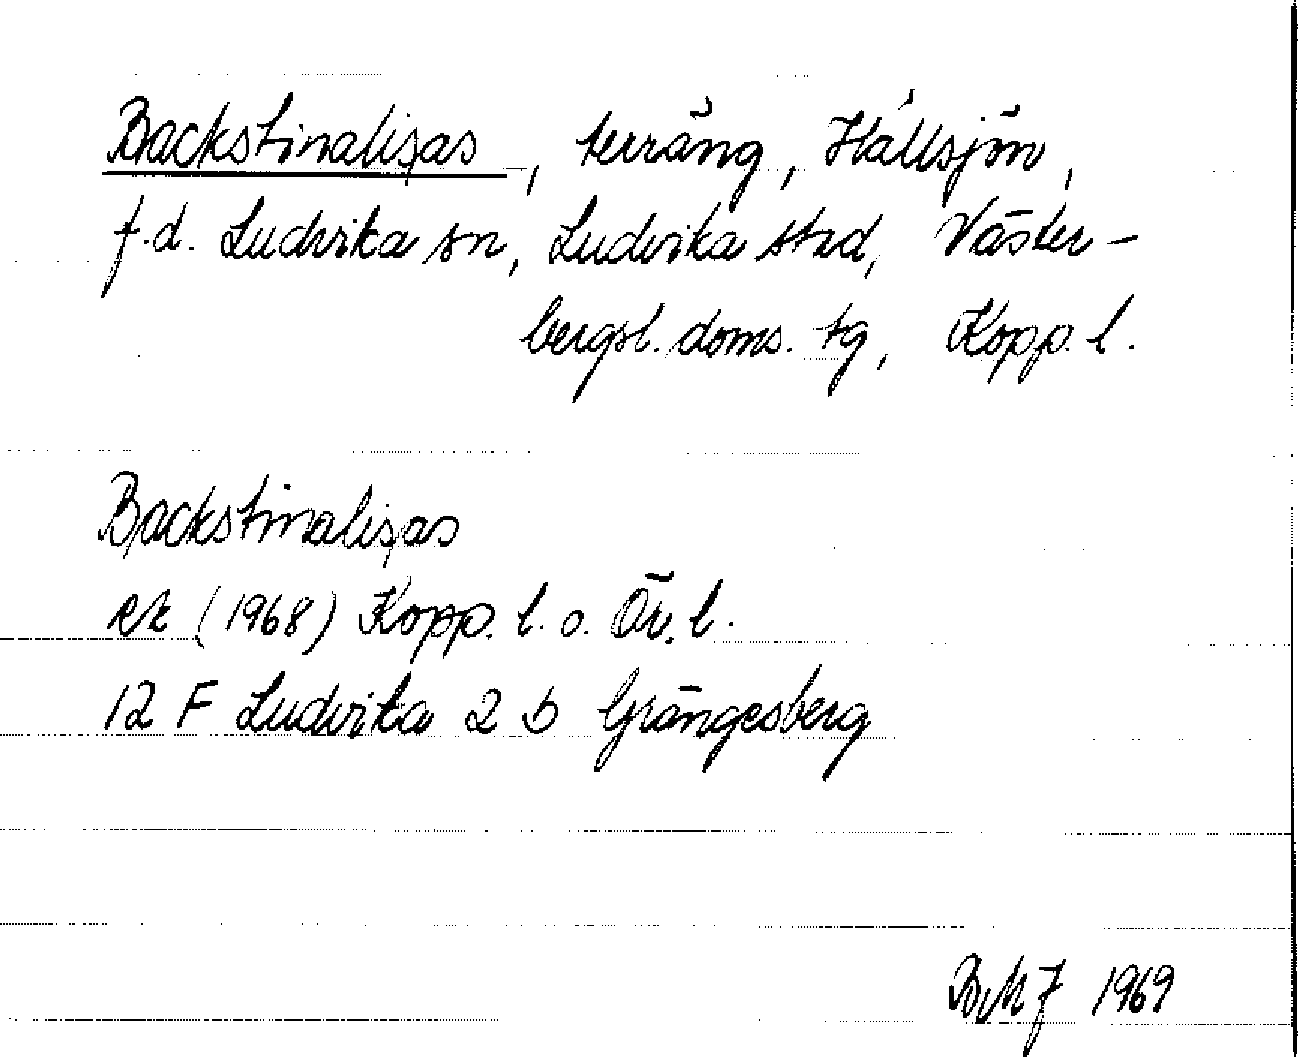 Backstinalisas, terräng, Hällsjön,
f.d. Ludvika sn, Ludvika stad, Väster-
bergsl. doms. tg, Kopp. l.
Backstinalisas
ek (1968) Kopp. l. o. Ör. l.
12 F Ludvika 2 b Grängesberg
BMJ 1969